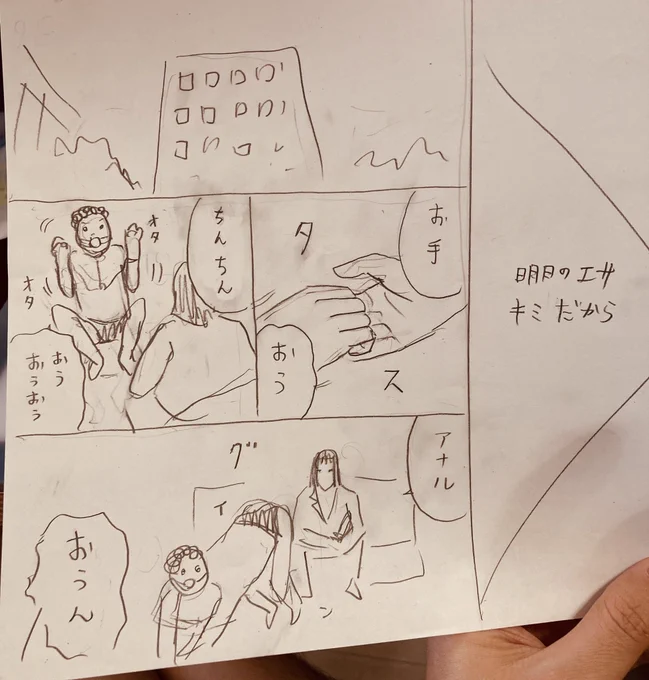 明日のエサ
キミだから
お手
タ
ス
おう
ちんちん
オタ
オタ
おう
おうおう
アナル
グ
イ
ン
おうん